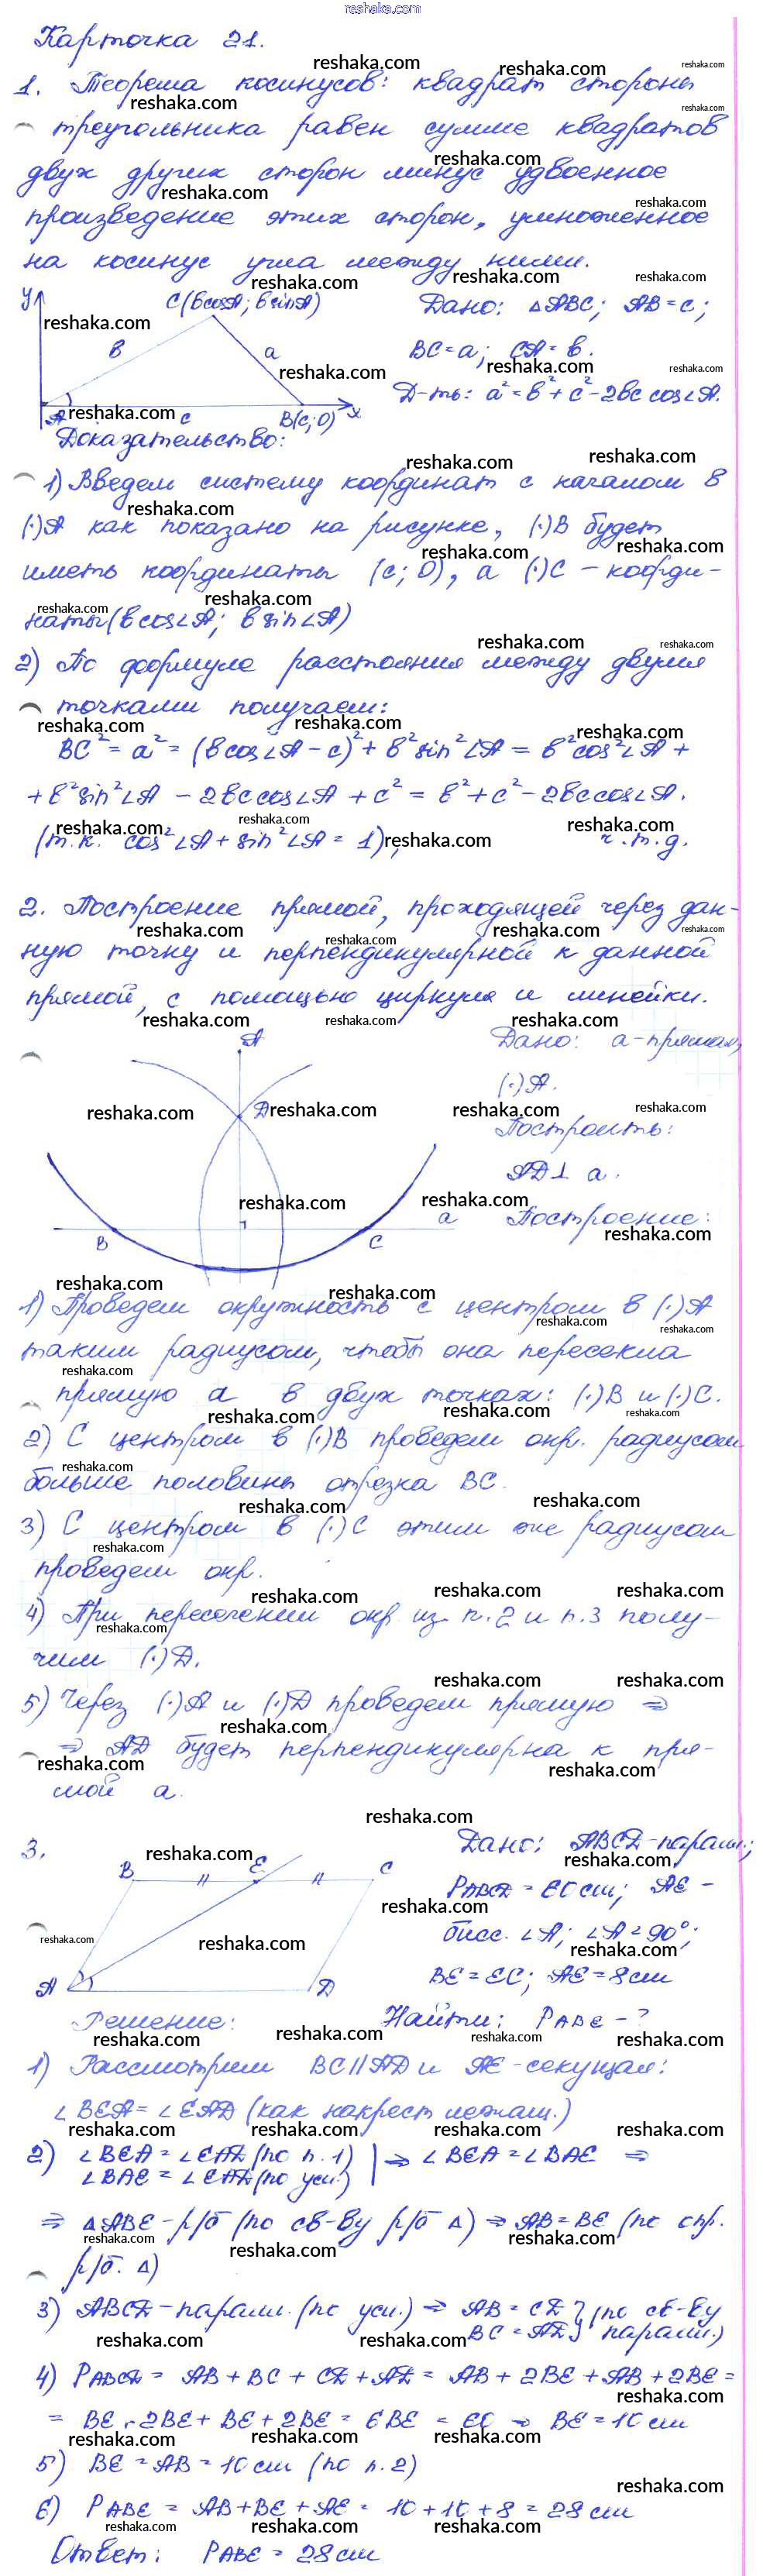 reshaka.com
Карточка 21.
1. Теорема косинусов: квадрат стороны
треугольника равен сумме квадратов
двух других сторон минус удвоенное
произведение этих сторон, умноженное
на косинус угла между ними.
y C(b cosA; b sinA) Дано: △ABC; AB=c;
b a BC=a; CA=b.
A c B(c; 0) x Д-ть: a²=b²+c²-2bc cos∠A.
Доказательство:
1) Введем систему координат с началом в
(·)A как показано на рисунке, (·)B будет
иметь координаты (c; 0), а (·)C - коорди-
наты (b cos∠A; b sin∠A)
2) По формуле расстояния между двумя
точками получаем:
BC² = a² = (b cos∠A - c)² + b² sin²∠A = b² cos²∠A +
+ b² sin²∠A - 2bc cos∠A + c² = b² + c² - 2bc cos∠A.
(т.к. cos²∠A + sin²∠A = 1), ч.т.д.
2. Построение прямой, проходящей через дан-
ную точку и перпендикулярной к данной
прямой, с помощью циркуля и линейки.
A Дано: a-прямая,
(·)A.
D Построить:
AD⊥a.
B C a Построение:
1) Проведем окружность с центром в (·)A
таким радиусом, чтобы она пересекла
прямую a в двух точках: (·)B и (·)C.
2) С центром в (·)B проведем окр. радиусом
больше половины отрезка BC.
3) С центром в (·)C этим же радиусом
проведем окр.
4) При пересечении окр из п.2 и п.3 полу-
чим (·)D.
5) Через (·)A и (·)D проведем прямую ⇒
⇒ AD будет перпендикулярна к пря-
мой a.
3. B E C Дано: ABCD-паралл.;
PABCD = 60 см; AE -
бисс. ∠A; ∠A≠90°;
A D BE = EC; AE = 8 см
Решение: Найти: PABE - ?
1) Рассмотрим BC||AD и AE-секущая:
∠BEA = ∠EAD (как накрест лежащ.)
2) ∠BEA = ∠EAD (по п.1) | ⇒ ∠BEA = ∠BAE ⇒
∠BAE = ∠EAD (по усл.)
⇒ △ABE - р/б (по св-ву р/б △) ⇒ AB = BE (по опр.
р/б. △)
3) ABCD - паралл. (по усл.) ⇒ AB = CD } (по св-ву
BC = AD } паралл.)
4) PABCD = AB + BC + CD + AD = AB + 2BE + AB + 2BE =
= BE + 2BE + BE + 2BE = 6BE = 60 ⇒ BE = 10 см
5) BE = AB = 10 см (по п.2)
6) PABE = AB + BE + AE = 10 + 10 + 8 = 28 см
Ответ: PABE = 28 см